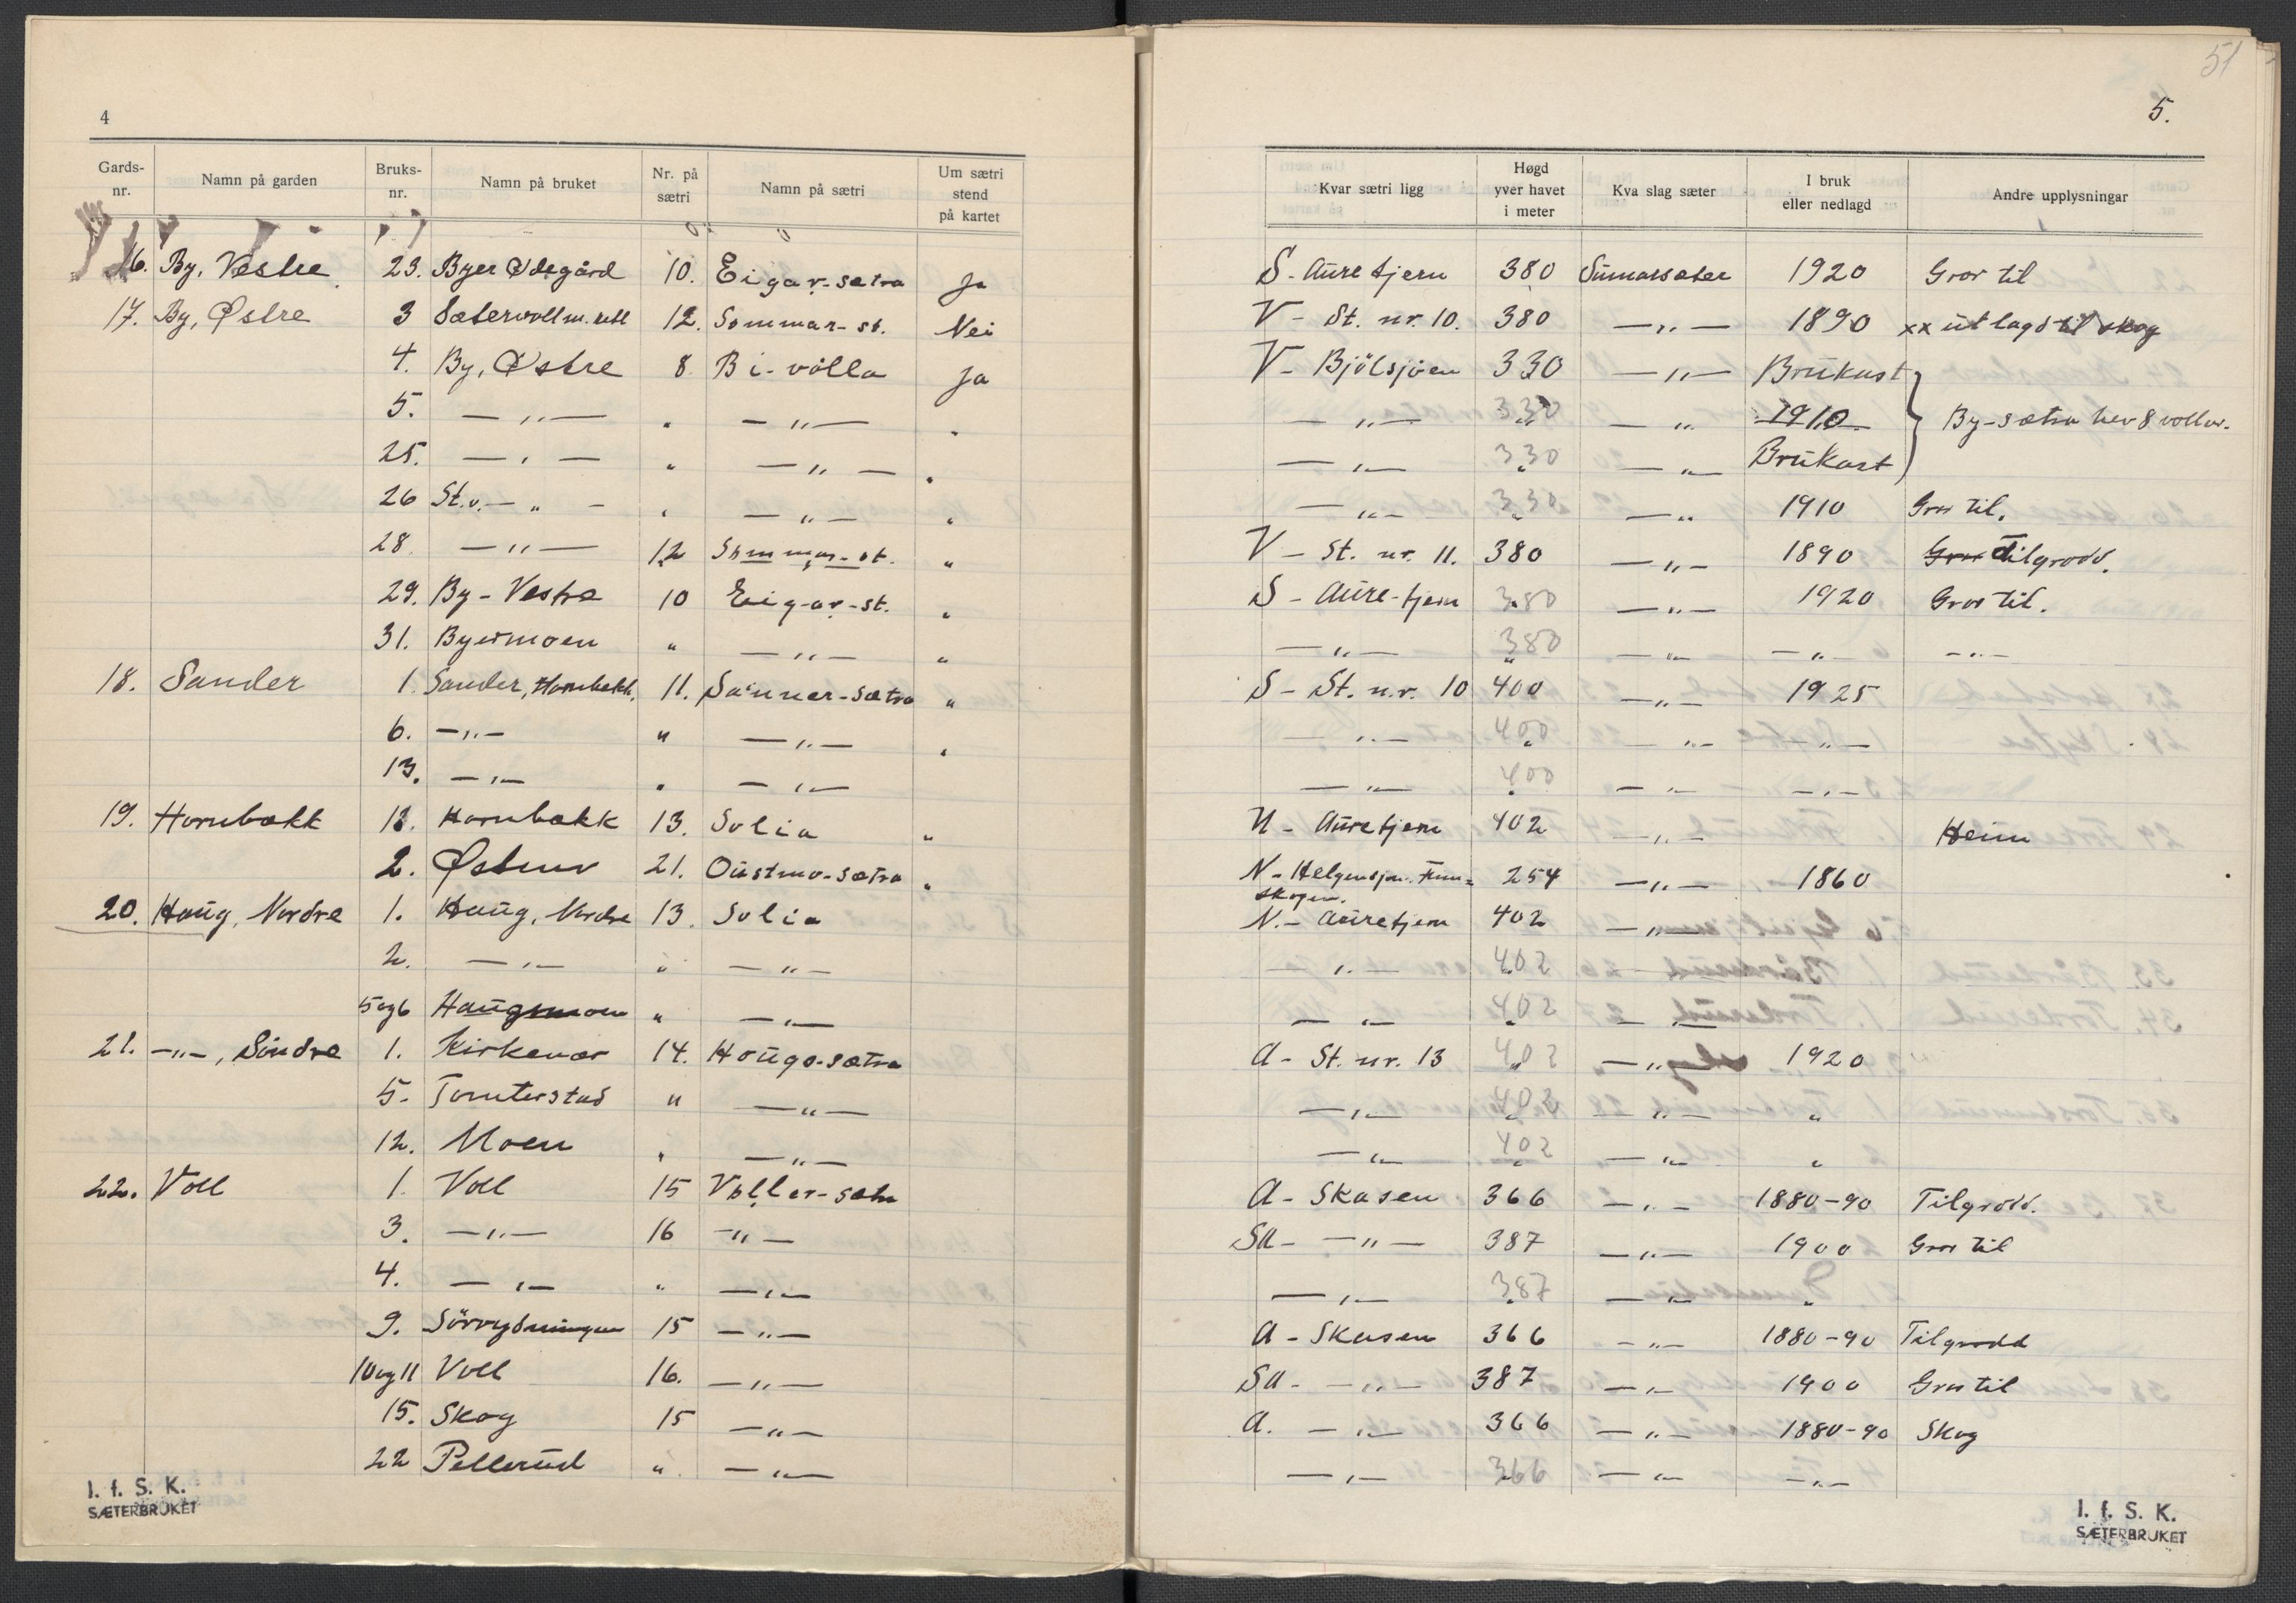 4
Gards-nr. Namn på garden Bruks-nr. Namn på bruket Nr. på sætri Namn på sætri Um sætri stend på kartet
16. By, Vestre 23. Byer Ødegård 10. Eigar-sætra Ja
17. By, Østre 3 Sætervoll m. 12. Sommar-st. Nei
4. By, Østre 8. Bi-vålla Ja
5. — " — " — " — "
25. — " — " — " — "
26 St.v. — " — " — " — "
28. — " — 12 Sommar-st. "
29. By-Vestre 10 Eigar-st. "
31. Byermoen " — " — "
18. Sander 1. Sander, Hornbekk. 11. Sanner-sætra "
6. — " — " — " — "
13. — " — " — " —
19. Hornbækk 12. Hornbækk 13. Solia "
2. Østmo 21. Oustmo-sætra "
20. Haug, Nordre 1. Haug, Nordre 13. Solia
2. — " — " — " —
5 og 6 Haugsmoen " — " —
21. — " —, Søndre 1. Kirkenær 14. Hougo-sætra
5. Tomterstad " — " —
12. Moen " — " —
22. Voll 1. Voll 15 Voller-sætra
3. — " — 16 — " —
4. — " — " — " —
9. Sörrydningen 15 — " —
10 og 11 Voll 16. — " —
15. Skog 15 — " —
22 Pellerud " — " —
I. f. S. K.
SÆTERBRUKET
51
5.
Kvar sætri ligg Høgd yver havet i meter Kva slag sæter I bruk eller nedlagd Andre upplysningar
S - Auretjern 380 Sumarsæter 1920 Gror til
V - St. nr. 10. 380 — " — 1890 xx utlagd til skog
V - Bjölsjöen 330 — " — Brukast
— " — 330 — " 1910 By-sætra hev 8 vollar.
— " — 330 — " Brukast
— " — 330 — " 1910 Gror til.
V - St. nr. 11. 380 — " — 1890 Gror Tilgrodd.
S - Aure-tjern 380 — " — 1920 Gror til.
— " — 380 — " — — " — — " —
S - St. nr. 10 400 — " — 1925
— " — 400 — " — — " —
— " — 400 — " — — " —
N - Auretjern 402 — " — Heim
N - Helgensjøen. Finn-skogen. 254 — " — 1860
N. - Auretjern 402 — " —
— " — 402
— " — 402 — " —
A - St. nr. 13 402 — " — 1920
— " — 402 — " — "
— " — 402 — " — "
A - Skasen 366 — " — 1880-90 Tilgrodd.
SA - — " — 387 — " — 1900 Gror til
— " — 387 — " — "
A - Skasen 366 — " — 1880-90 Tilgrodd
SA - — " — 387 — " — 1900 Gror til
A. — " — 366 — " — 1880-90 Skog
— " — 366 — " — — " —
I. f. S. K.
SÆTERBRUKET